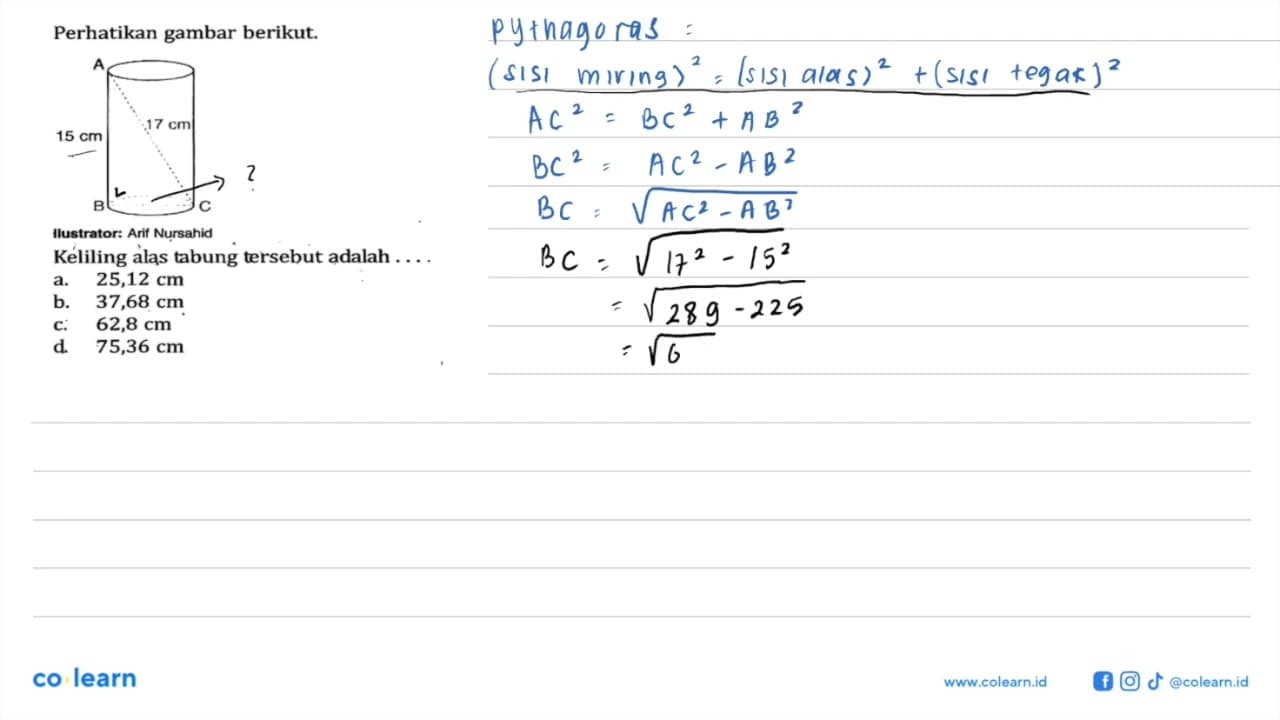 Perhatikan gambar berikut.
A
17 cm
15 cm
?
B
C
Ilustrator: Arif Nursahid
Keliling alas tabung tersebut adalah . . . .
a. 25,12 cm
b. 37,68 cm
c. 62,8 cm
d. 75,36 cm
Pythagoras =
(sisi miring)² = (sisi alas)² + (sisi tegak)²
AC² = BC² + AB²
BC² = AC² - AB²
BC = √AC² - AB²
BC = √17² - 15²
= √289 - 225
= √6
co learn
www.colearn.id
@colearn.id